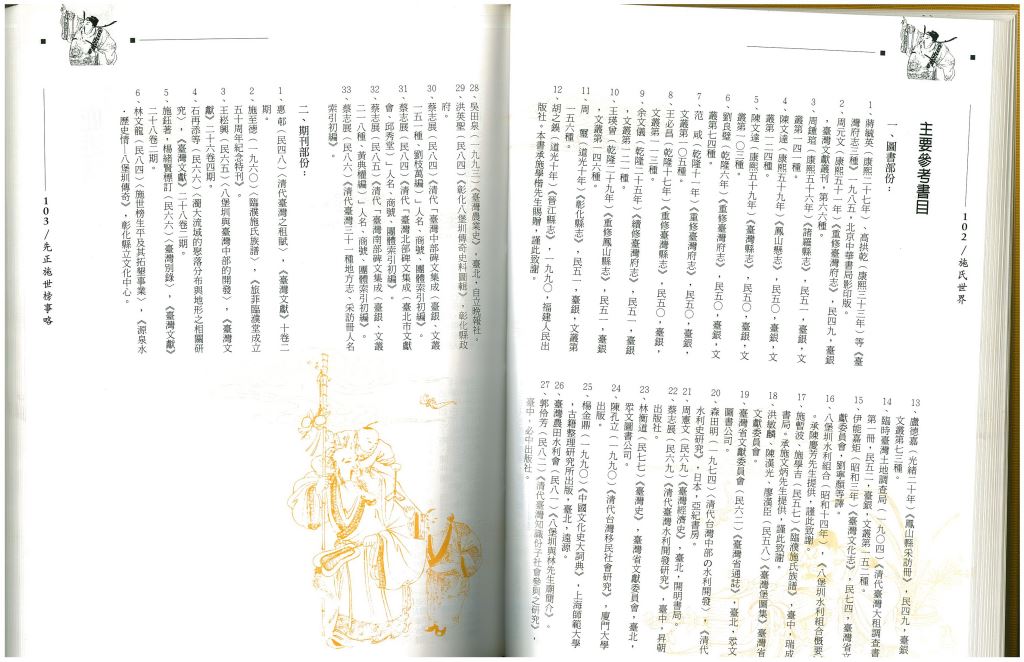 102/施氏世界
主要參考書目
一、圖書部份：
1、蔣毓英（康熙二十七年）、高拱乾（康熙三十三年）等《臺
灣府志三種》，一九八五，北京中華書局影印版。
2、周元文（康熙五十一年）《重修臺灣府志》，民四九，臺銀
，臺灣文獻叢刊，第六六種。
3、周鍾瑄（康熙五十六年）《諸羅縣志》，民五一，臺銀，文
叢第一四一種。
4、陳文達（康熙五十九年）《鳳山縣志》，民五〇，臺銀，文
叢第一二四種。
5、陳文達（康熙五十九年）《臺灣縣志》，民五〇，臺銀，文
叢第一〇三種。
6、劉良璧（乾隆六年）《重修臺灣府志》，民五〇，臺銀，文
叢第七四種。
7、范 咸（乾隆十一年）《重修臺灣府志》，民五〇，臺銀
，文叢第一〇五種。
8、王必昌（乾隆十七年）《重修臺灣縣志》，民五〇，臺銀，
文叢第一一三種。
9、余文儀（乾隆二十五年）《續修臺灣府志》，民五一，臺銀
，文叢第一二一種。
10、王瑛曾（乾隆二十九年）《重修鳳山縣志》，民五一，臺銀
，文叢第一四六種。
11、周 璽（道光十年）《彰化縣志》，民五一，臺銀，文叢第
一五六種。
12、胡之鋘（道光十年）《晉江縣志》，一九九〇，福建人民出
版社。本書承施學楷先生賜贈，謹此致謝。
13、盧德嘉（光緒二十年）《鳳山縣采訪冊》，民四九，臺銀，
文叢第七三種。
14、臨時臺灣土地調查局（一九〇四）《清代臺灣大租調查書》
第一冊，民五二，臺銀，文叢第一五二種。
15、伊能嘉矩（昭和三年）《臺灣文化志》，民七四，臺灣省文
獻委員會，劉寧顏等譯。
16、八堡圳水利組合（昭和十四年），《八堡圳水利組合概要》
。承陳慶芳先生提供，謹此致謝。
17、施暫波、施學吉（民五七）《臨濮施氏族譜》，臺中，瑞成
書局。承施文炳先生提供，謹此致謝。
18、洪敏麟、陳漢光、廖漢臣（民五八）《臺灣堡圖集》臺灣省
文獻委員會。
19、臺灣省文獻委員會（民六二）《臺灣省通誌》，臺北，眾文
圖書公司。
20、森田明（一九七四）《清代台灣中部の水利開發》，《清代
水利史研究》，日本，亞紀書房。
21、周憲文（民六九）《臺灣經濟史》，臺北，開明書局。
22、蔡志展（民六九）《清代臺灣水利開發研究》，臺中，昇朝
出版社。
23、林衡道（民七七）《臺灣史》，臺灣省文獻委員會，臺北，
眾文圖書公司。
24、陳孔立（一九九〇）《清代台灣移民社會研究》，廈門大學
出版。
25、楊金鼎（一九九〇）《中國文化史大詞典》，上海師範大學
，古籍整理研究所出版，臺北，遠源。
26、臺灣農田水利會（民八一）《八堡圳與林先生廟簡介》。
27、郭伶芳（民八二）《清代臺灣知識份子社會參與之研究》，
臺中，必中出版社。
28、吳田泉（一九九三）《臺灣農業史》，臺北，自立晚報社。
29、洪英聖（民八四）《彰化八堡圳傳奇史料圖輯》，彰化縣政
府。
30、蔡志展（民八四）《清代「臺灣中部碑文集成（臺銀、文叢
一五一種、劉枝萬編」人名、商號、團體索引初編》。
31、蔡志展（民八四）《清代「臺灣北部碑文集成（臺北市文獻
會、邱秀堂）」人名、商號、團體索引初編》。
32、蔡志展（民八五）《清代「臺灣南部碑文集成（臺銀、文叢
二一八種、黃典權編）」人名，商號、團體索引初編》。
33、蔡志展（民八六）《清代臺灣三十一種地方志、采訪冊人名
索引初編》。
二、期刊部份：
1、惠邨（民四八）《清代臺灣之租賦》，《臺灣文獻》十卷二
期。
2、施至德（一九六〇）《臨濮施氏族譜》，《旅菲臨濮堂成立
五十周年紀念特刊》。
3、王崧興（民六五）《八堡圳與臺灣中部的開發》，《臺灣文
獻》二十六卷四期。
4、石再添等（民六六）《濁大流域的聚落分布與地形之相關研
究》，《臺灣文獻》二十八卷二期。
5、施鈺著，楊緒賢標訂（民六六）《臺灣別錄》，《臺灣文獻》
二十八卷二期。
6、林文龍（民八四）《施世榜生平及其拓墾事業》，《源泉水
，歷史情—八堡圳傳奇》，彰化縣立文化中心。
103/先正施世榜事略